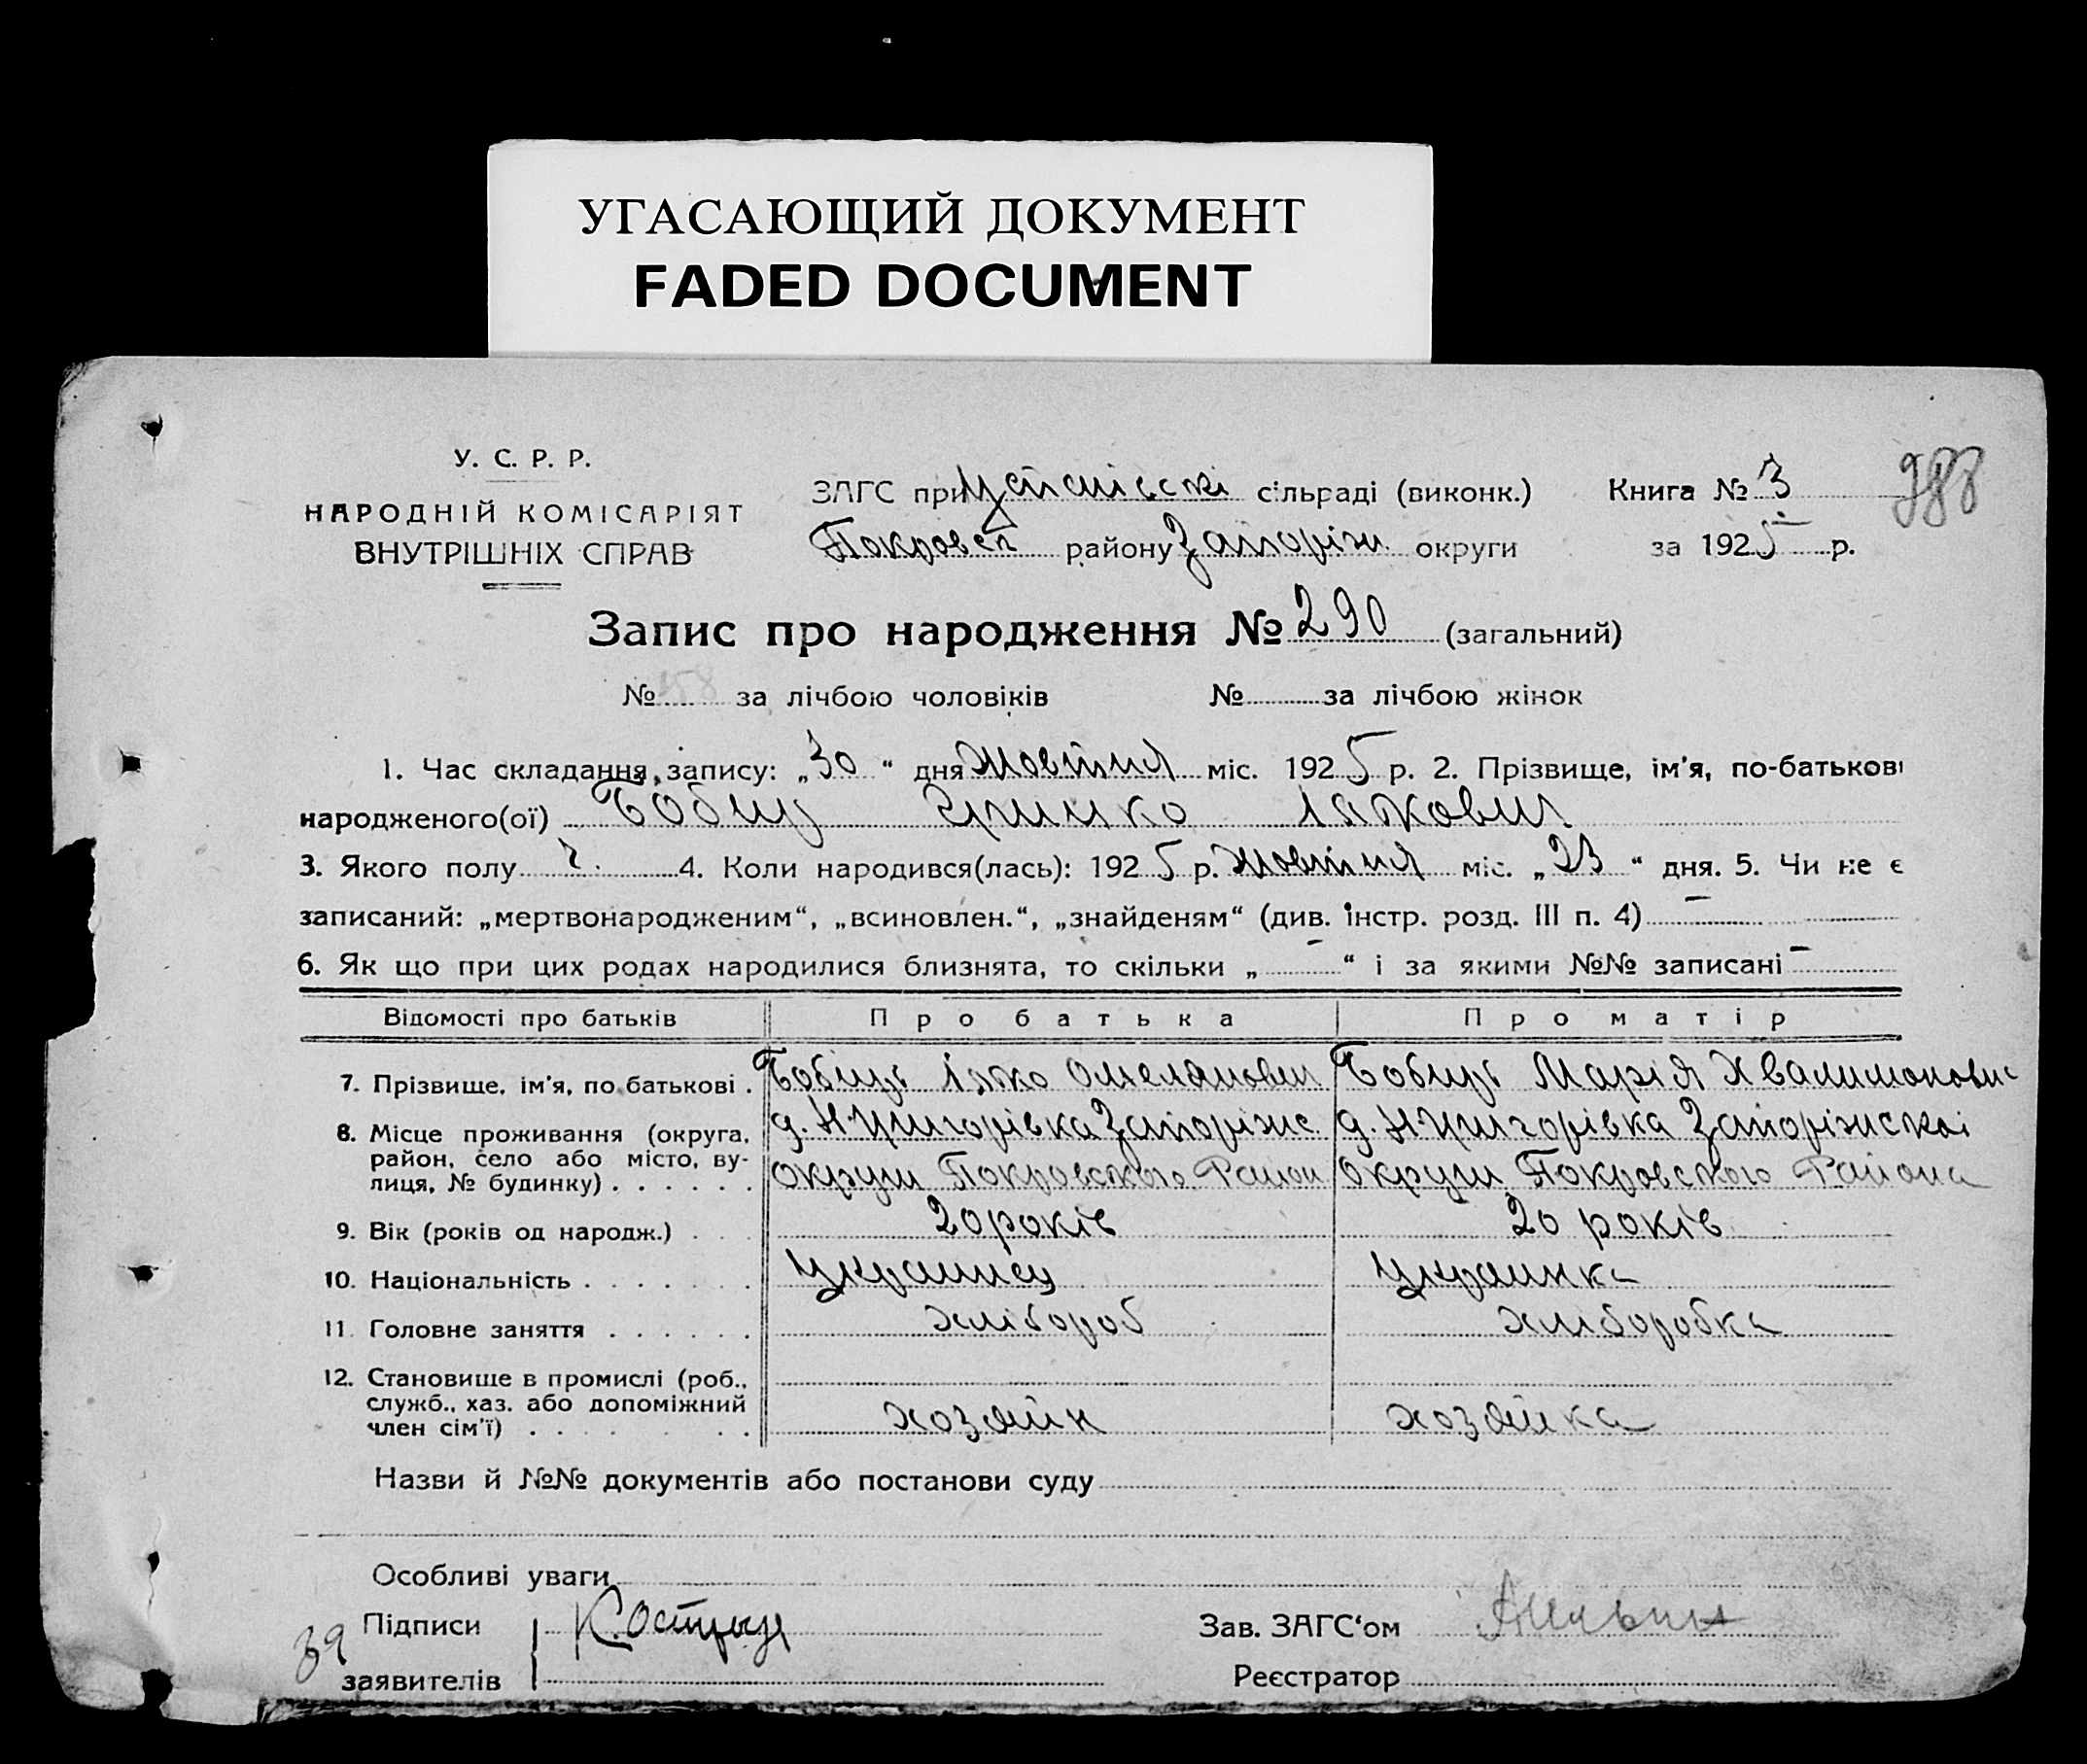 УГАСАЮЩИЙ ДОКУМЕНТ
FADED DOCUMENT
У. С. Р. Р.
НАРОДНІЙ КОМІСАРІЯТ
ВНУТРІШНІХ СПРАВ
ЗАГС при сільраді (виконк.)
Покровск району Запоріж. округи
Книга № 3
за 1925 р.
988
Запис про народження № 290 (загальний)
№ 158 за лічбою чоловіків № за лічбою жінок
1. Час складання запису: „30“ дня Жовтня міс. 1925 р. 2. Прізвище, ім'я, по-батькові
народженого(ої) Бобиц Гришко Іякович
3. Якого полу ч. 4. Коли народився(лась): 1925 р. Жовтня міс. „23“ дня. 5. Чи не є
записаний: „мертвонародженим“, „всиновлен.“, „знайденям“ (див. інстр. розд. III п. 4) —
6. Як що при цих родах народилися близнята, то скільки „ — “ і за якими №№ записані —
Відомості про батьків Про батька Про матір
7. Прізвище, ім'я, по батькові . Омелянович Марія Хвалимоновн
8. Місце проживання (округа, район, село або місто, вулиця, № будинку) . . . . . .
д. Н Григорівка Запоріжс. округи Покровського Район
д. Н Григорівка Запоріжскоі округи Покровского Района
9. Вік (років од народж.) . . . 20 років 20 років
10. Національність . . . . . . . Украинец Украинка
11. Головне заняття . . . . . . хлібороб хліборобка
12. Становище в промислі (роб., служб., хаз. або допоміжний член сім'ї) . . . . . . . хозяйн хозяйка
Назви й №№ документів або постанови суду
Особливі уваги
39 Підписи заявителів
Зав. ЗАГС‘ом
Реєстратор